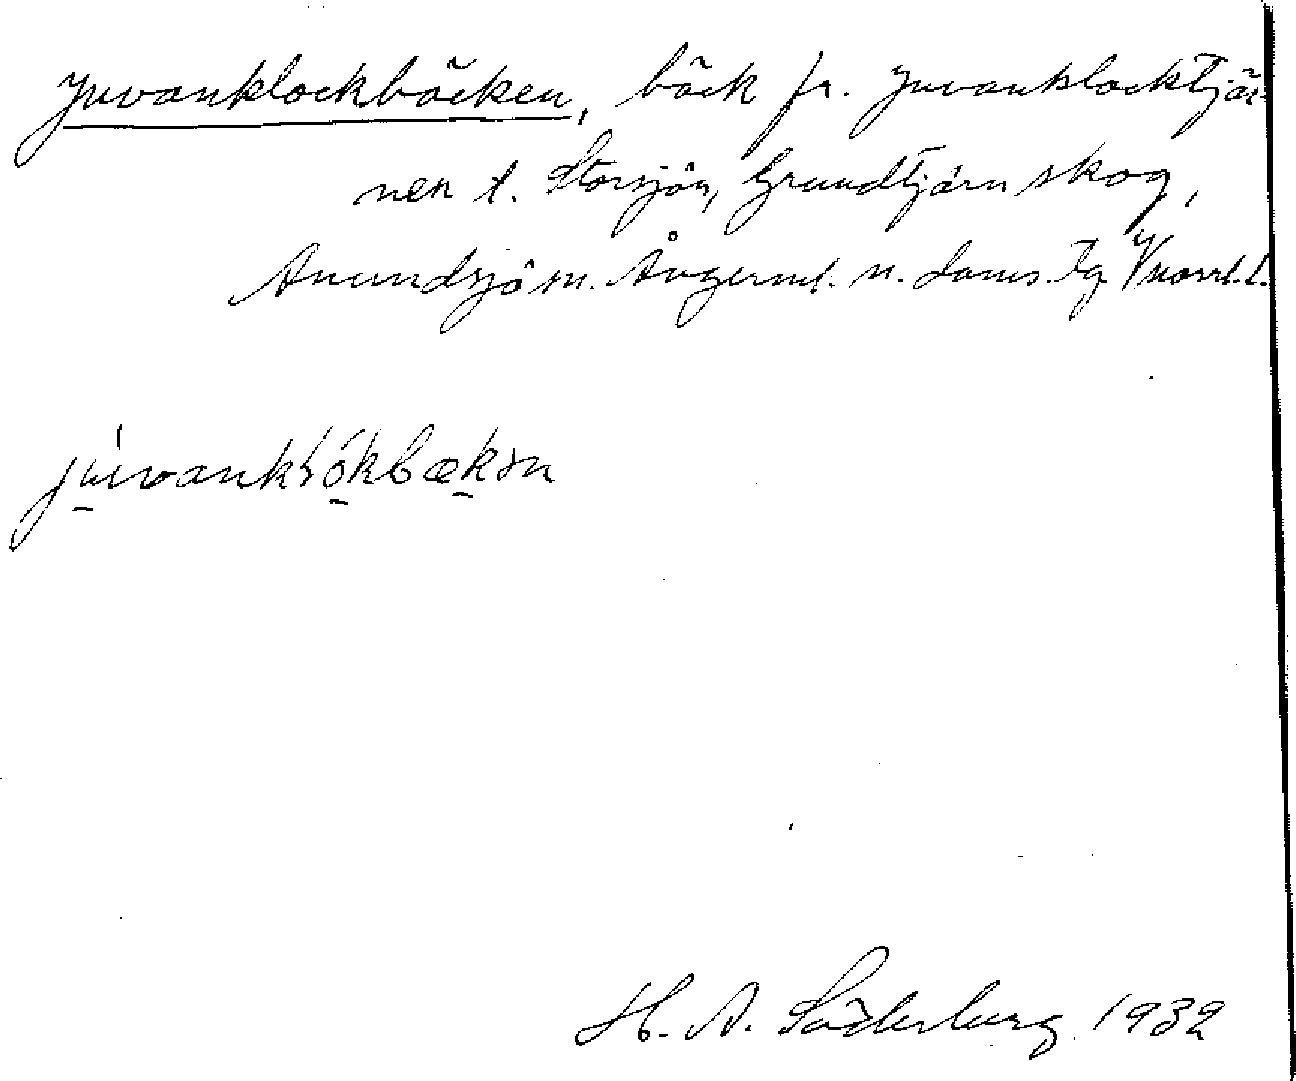 Juvanklockbäcken, bäck fr. Juvanklocktjär-
nen t. Storsjön, Grundtjärn skog,
Anundsjö sn. Ångerml. n. doms. Tg V norrl. l.
júvanklókbækən
H. A. Söderberg 1932